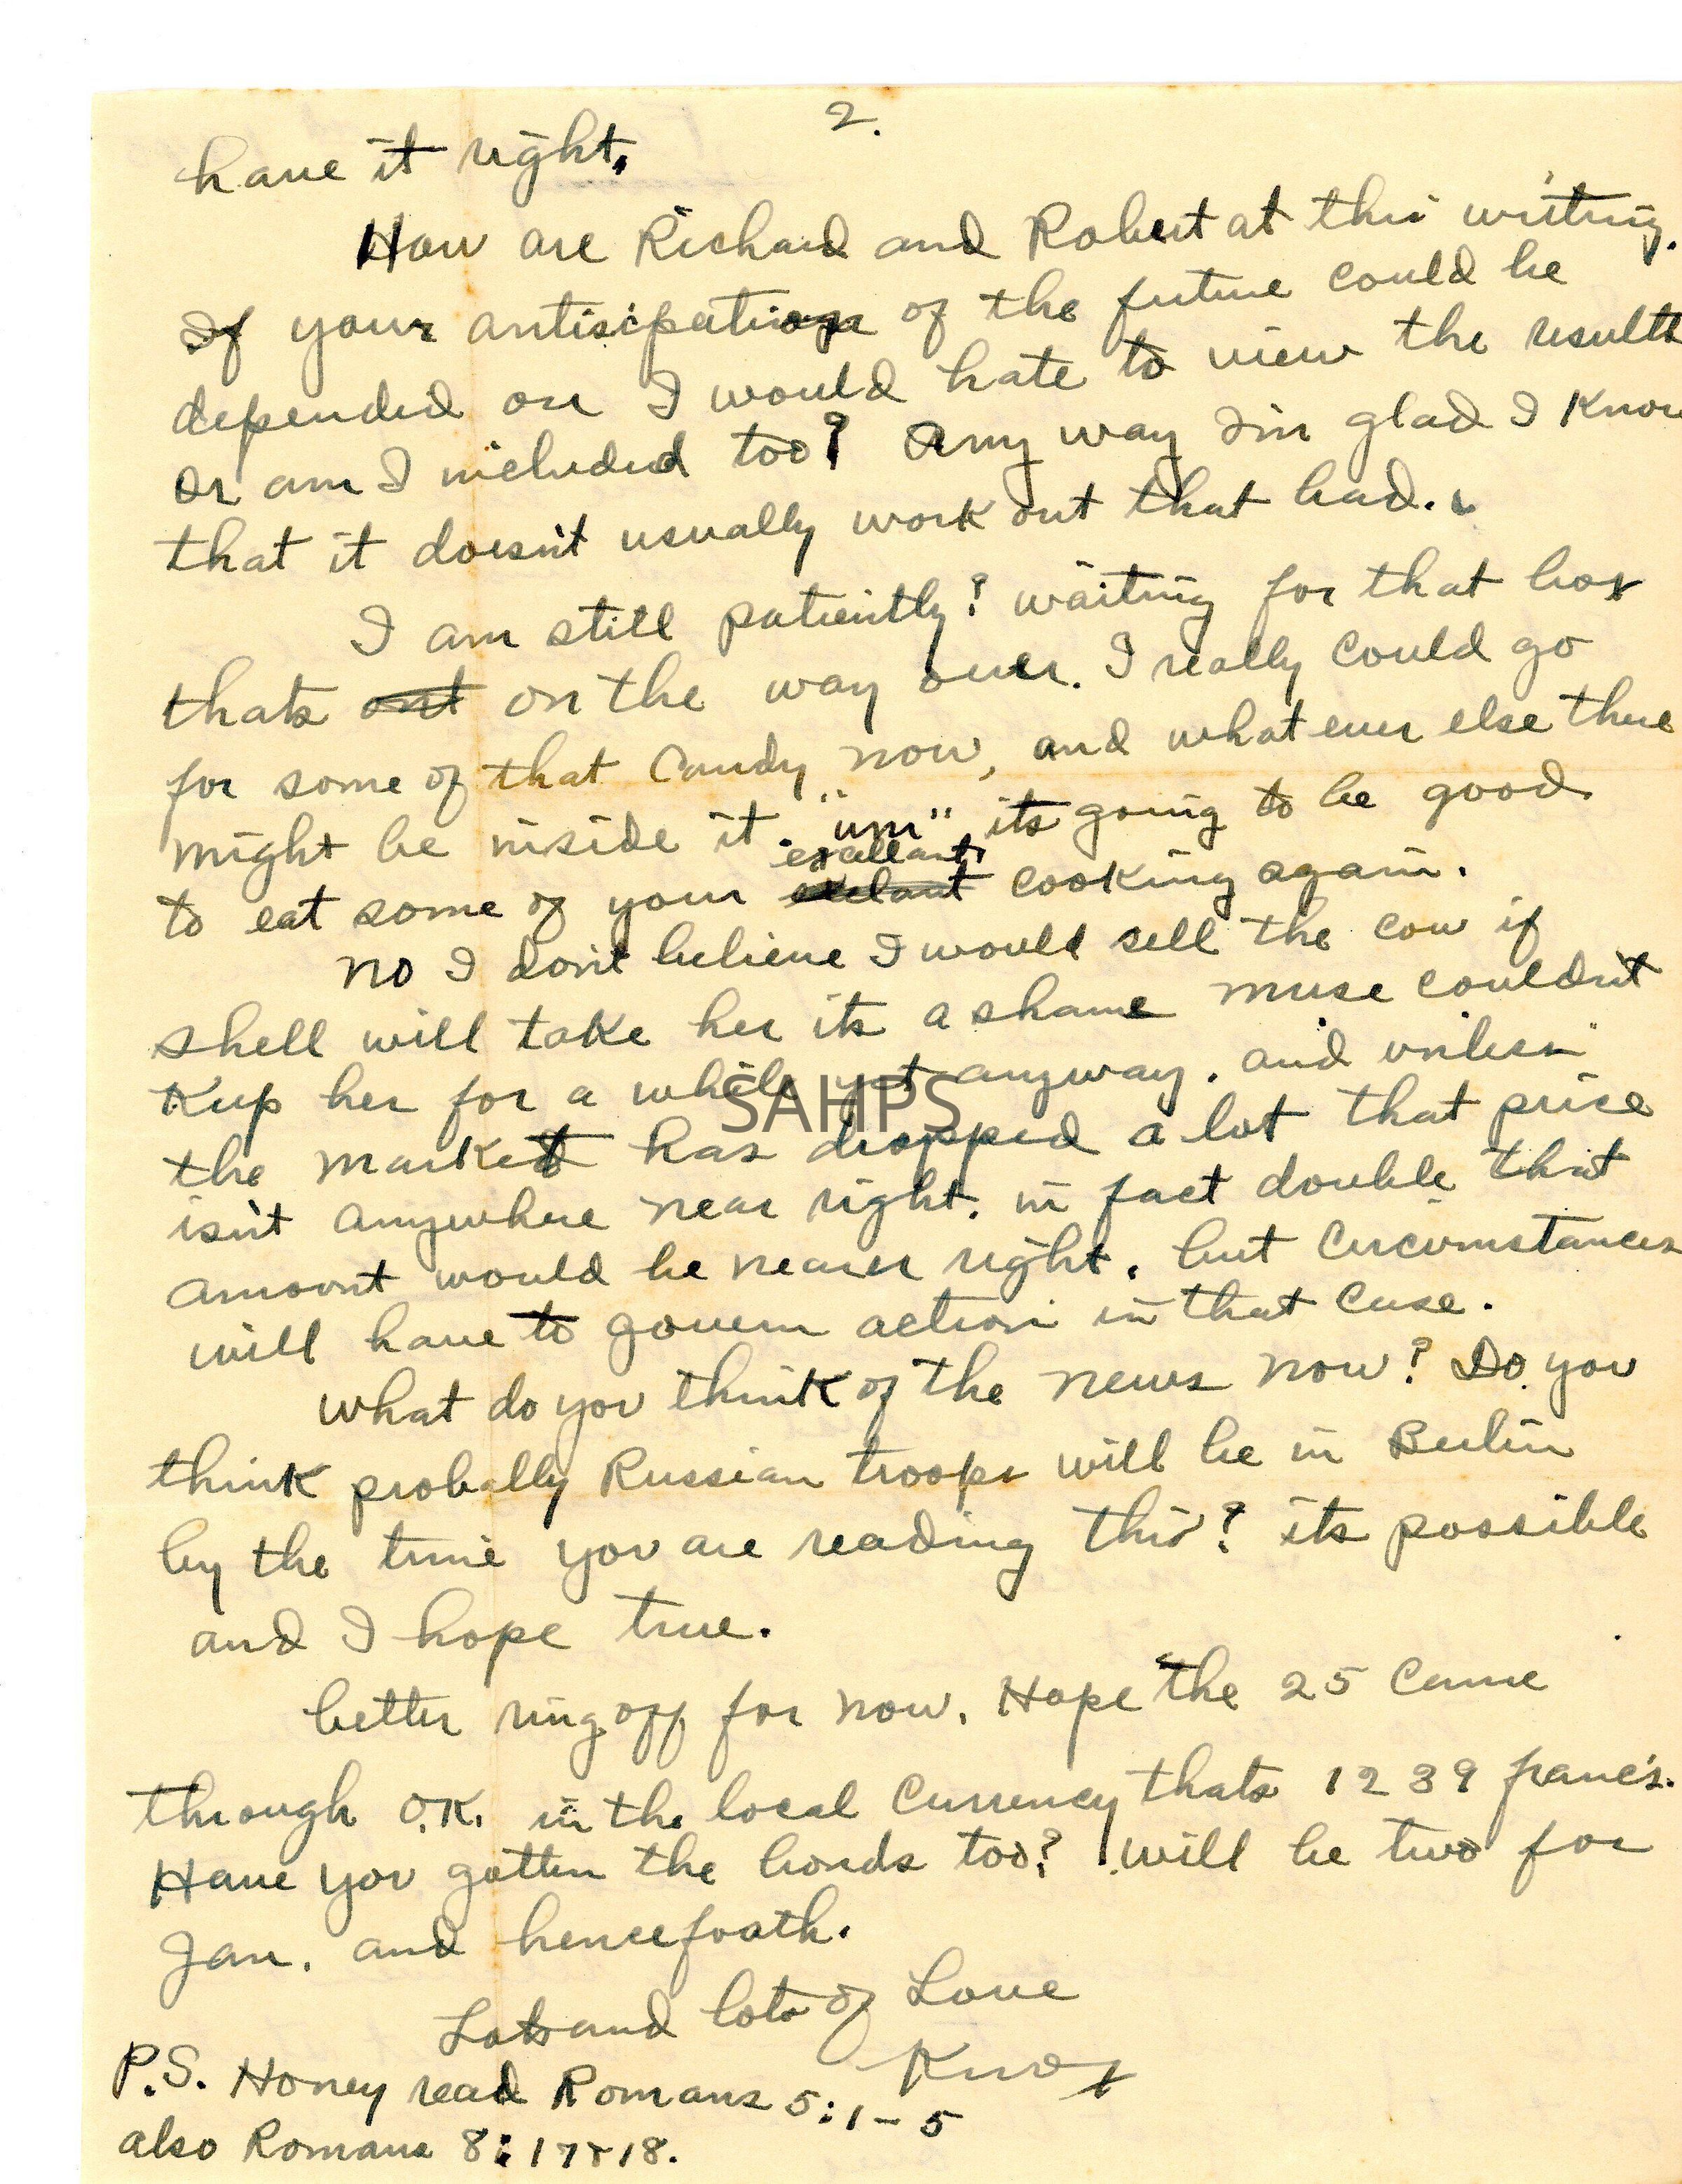 2.
have it right.
How are Richard and Robert at this writing.
If your antisipation of the future could be
depended on I would hate to view the results
Or am I included too? Any way I'm glad I know
that it doesn't usually work out that bad.
I am still patiently? waiting for that box
thats out on the way over. I really could go
for some of that Candy now, and what ever else there
might be inside it. "um" its going to be good
to eat some of your exelant excellant cooking again.
No I don't believe I would sell the cow if
shell will take her its a shame Muse couldn't
Keep her for a while yet anyway. and unless
SAHPS
the market has dropped a lot that price
isn't anywhere near right. in fact double that
amount would be nearer right. but Circumstances
will have to govern action in that case.
What do you think of the news now? Do you
think probally Russian troops will be in Berlin
by the time you are reading this? its possible
and I hope true.
better ring off for now. Hope the 25 came
through O.K. in the local Currency thats 1239 franc's.
Have you gotten the bonds too? will be two for
Jan. and henceforth.
Lots and lots of Love
Knox
P.S. Honey read Romans 5:1-5
also Romans 8:17&18.